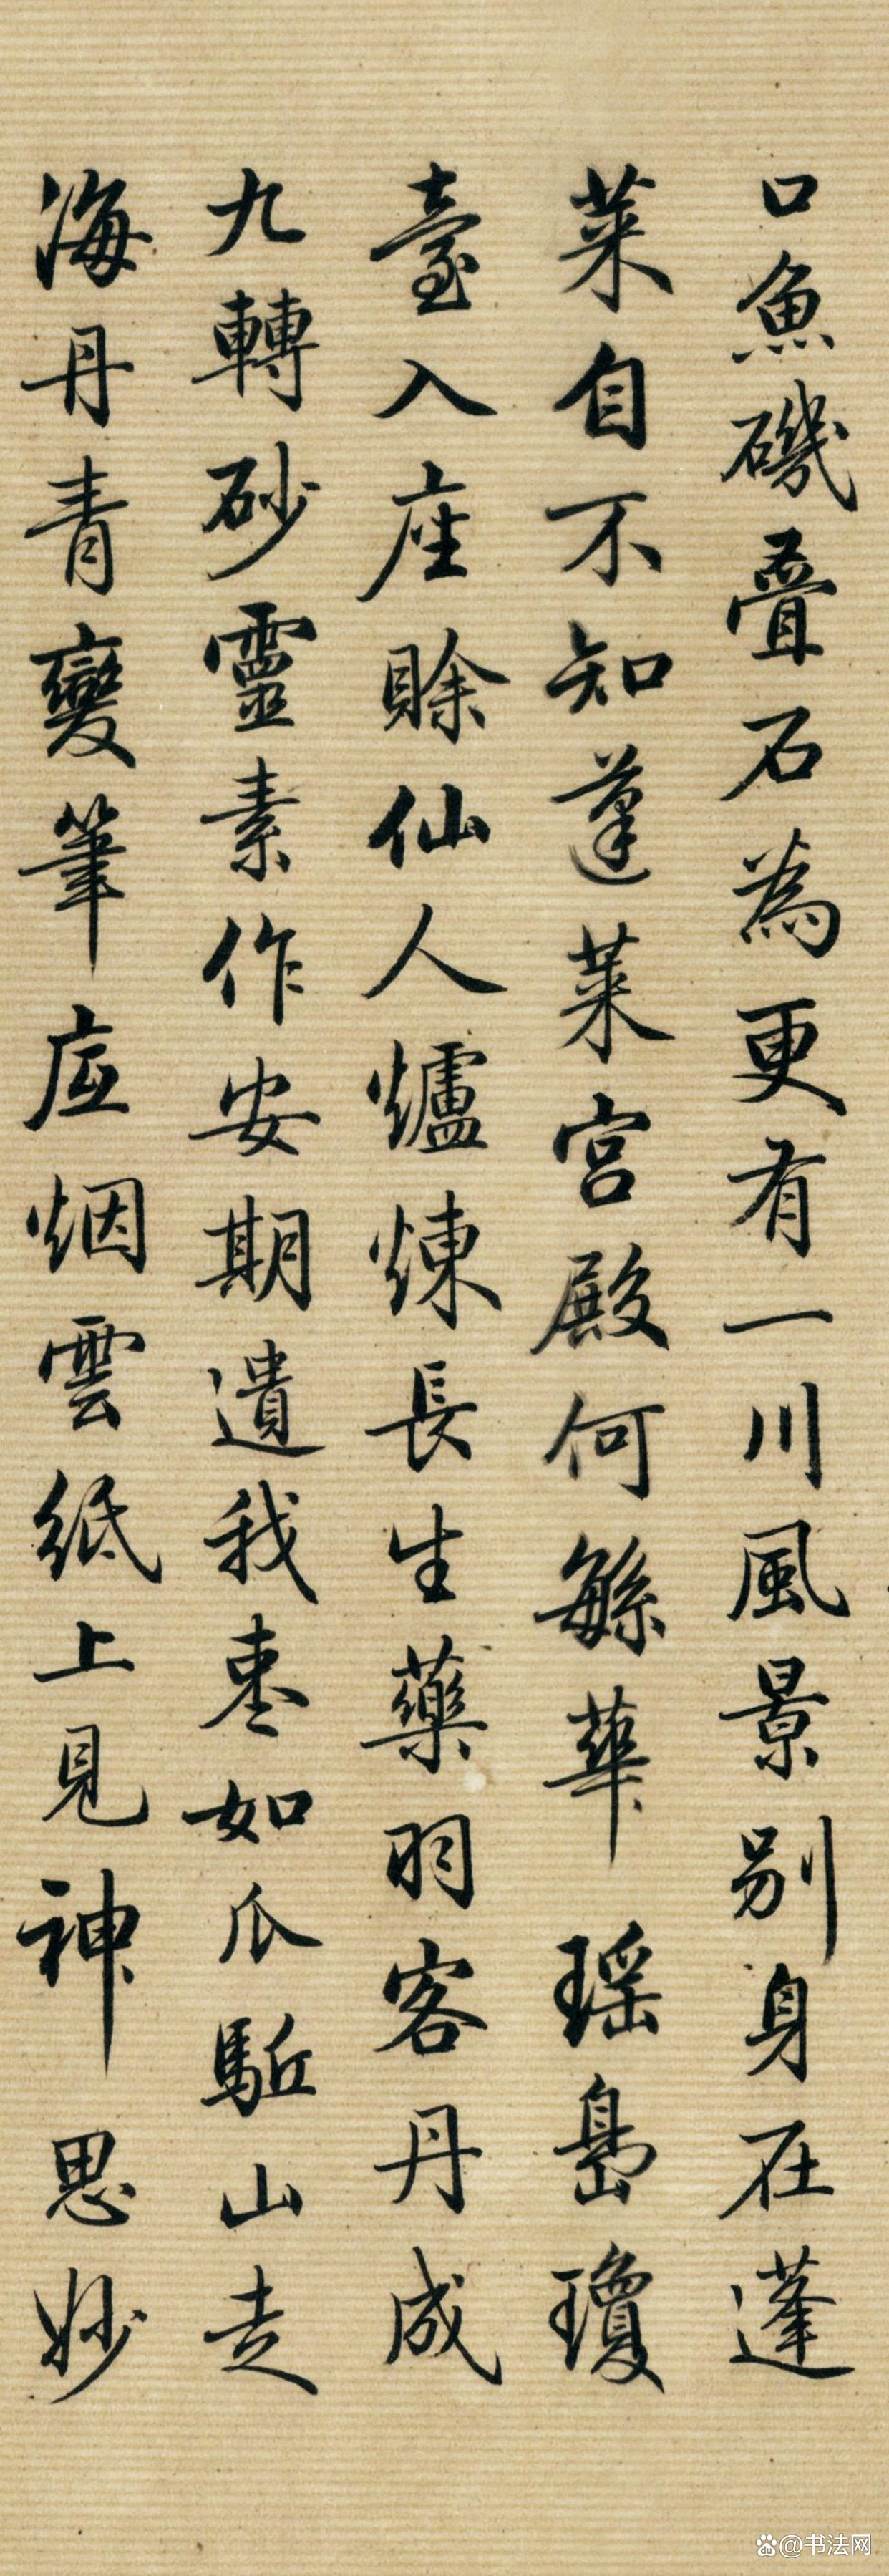 口魚磯疊石為更有一川風景别身在蓬
萊自不知蓬萊宮殿何繁華瑶島瓊
臺入座賒仙人爐煉長生藥羽客丹成
九轉砂靈素作安期遺我棗如瓜駈山走
海丹青變筆底烟雲紙上見神思妙
@书法网